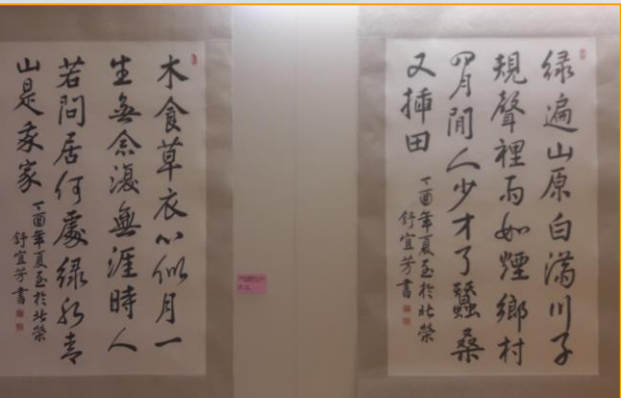 绿遍山原白满川子
規聲裡雨如煙鄉村
四月閒人少才了蠶桑
又插田
丁酉年夏至於北榮
舒宜芳書
木食草衣心似月一
生無念復無涯時人
若問居何處绿水青
山是我家
丁酉年夏至於北榮
舒宜芳書